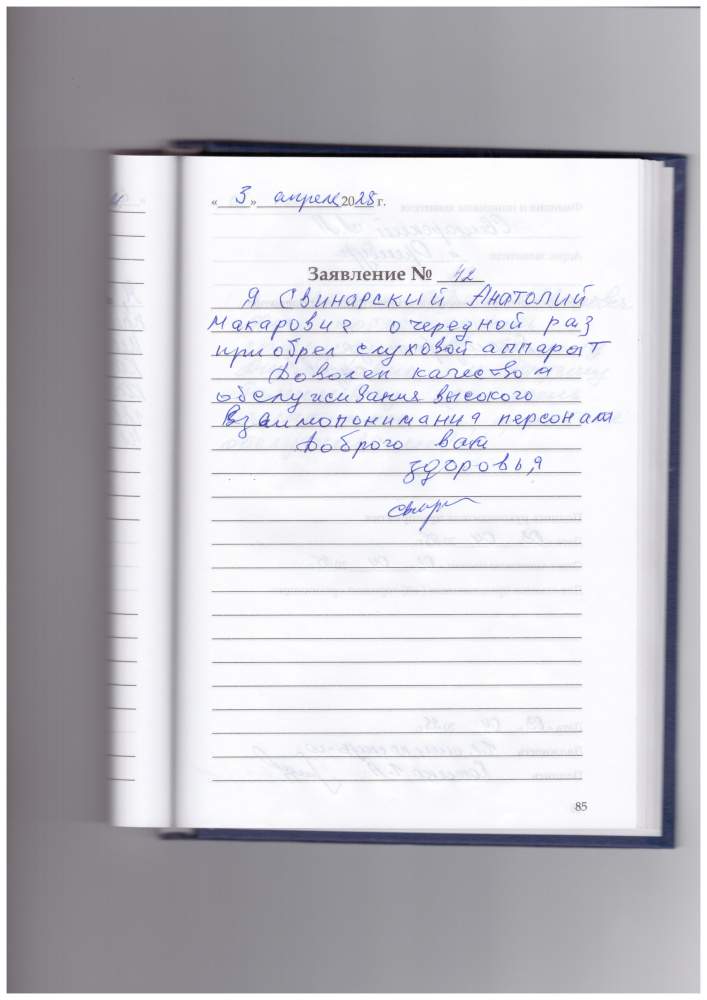 «3» апреля 2025 г.
Заявление № 42
Я Свинарский Анатолий
Макарович очередной раз
приобрел слуховой аппарат
Доволен качеством
обслуживания высокого
взаимопонимания персонала
Доброго вам
здоровья
85